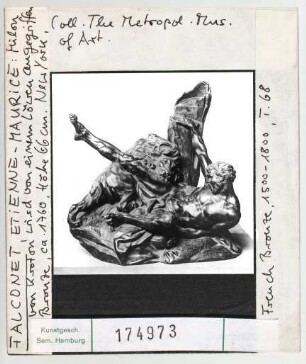 Coll. The Metropol. Mus.
of Art.
FALCONET ETIENNE-MAURICE: Milon
von Kroton, wird von einem Löwen angegriffen
Bronze, ca 1760, Höhe 66 cm. New York,
French Bronze, 1500-1800, T. 68
Kunstgesch.
Sem. Hamburg
174973